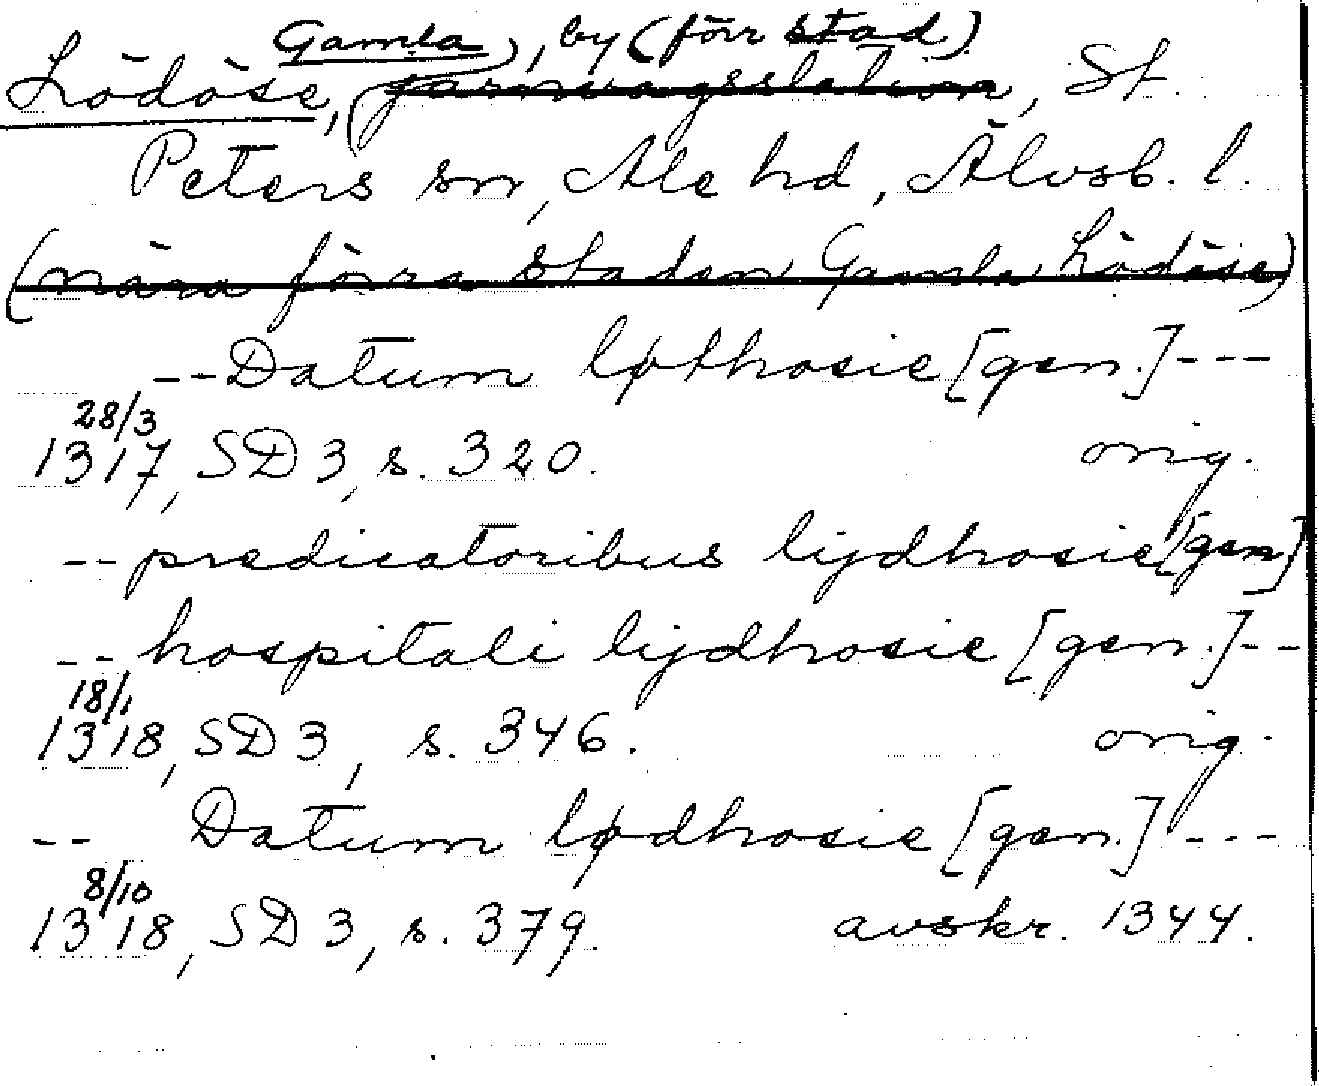 Gamla), by (förr stad)
Lödöse, (järnvägsstation, St.
Peters sn, Ale hd, Älvsb. l.
(nära förra staden Gamla Lödöse)
--Datum løthosie [gen.]---
28/3
1317, SD 3, s. 320. orig.
--predicatoribus lydhosie [gen]
--hospitali lydhosie [gen.]--
18/1
1318, SD 3, s. 346. orig.
-- Datum lødhosie [gen.]---
8/10
1318, SD 3, s. 379. avskr. 1344.